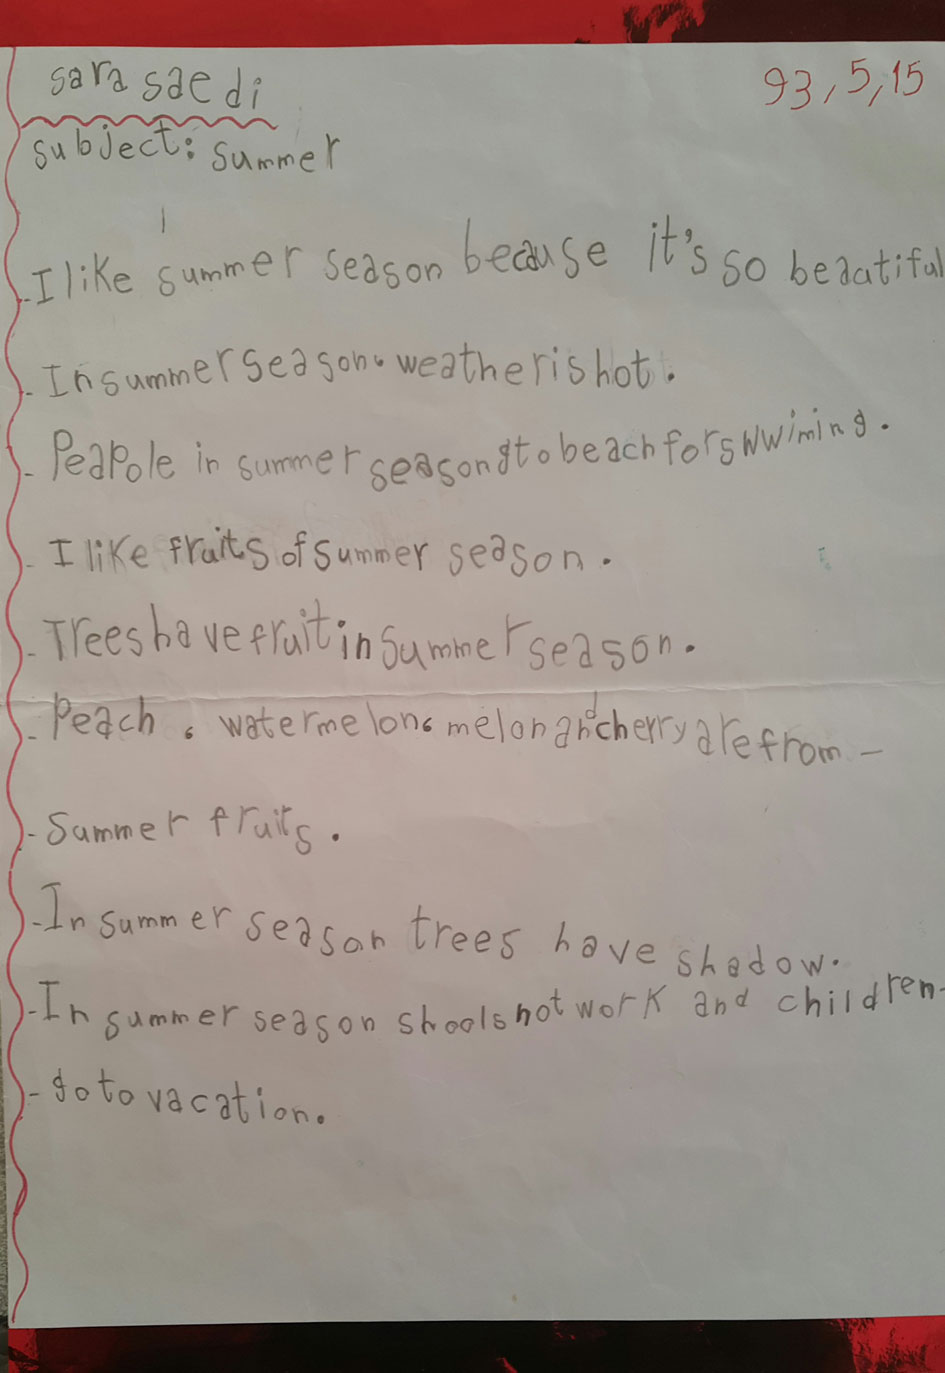 sara saedi
93,5,15
subject: summer
- I like summer season because it's so beautiful
- In summer season، weather is hot.
- Peapole in summer season gto beach for swwiming.
- I like fruits of summer season.
- Trees have fruit in summer season.
- Peach، watermelon، melon and cherry are from -
- summer fruits.
- In summer season trees have shadow.
- In summer season shools not work and children -
- go to vacation.